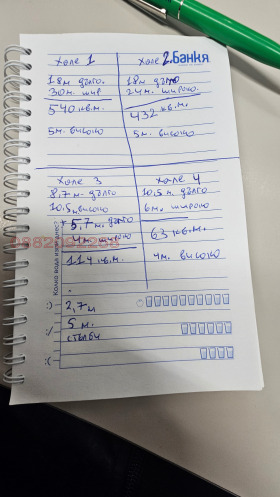 Хале 1
18м дълго.
30м. шир
540 кв.м.
5м. високо
Хале 2. Банкя
18м дълго
24м. широко.
432 кв.м.
5м. високо
Хале 3
8,7м. дълго
10,5м високо
+ 5,7м. дълго
4м. широко
114 кв.м.
Хале 4
10,5м. дълго
6м. широко
63 кв.м.
4м. високо
2,7м
5 м.
стълби
:)
:/
:(